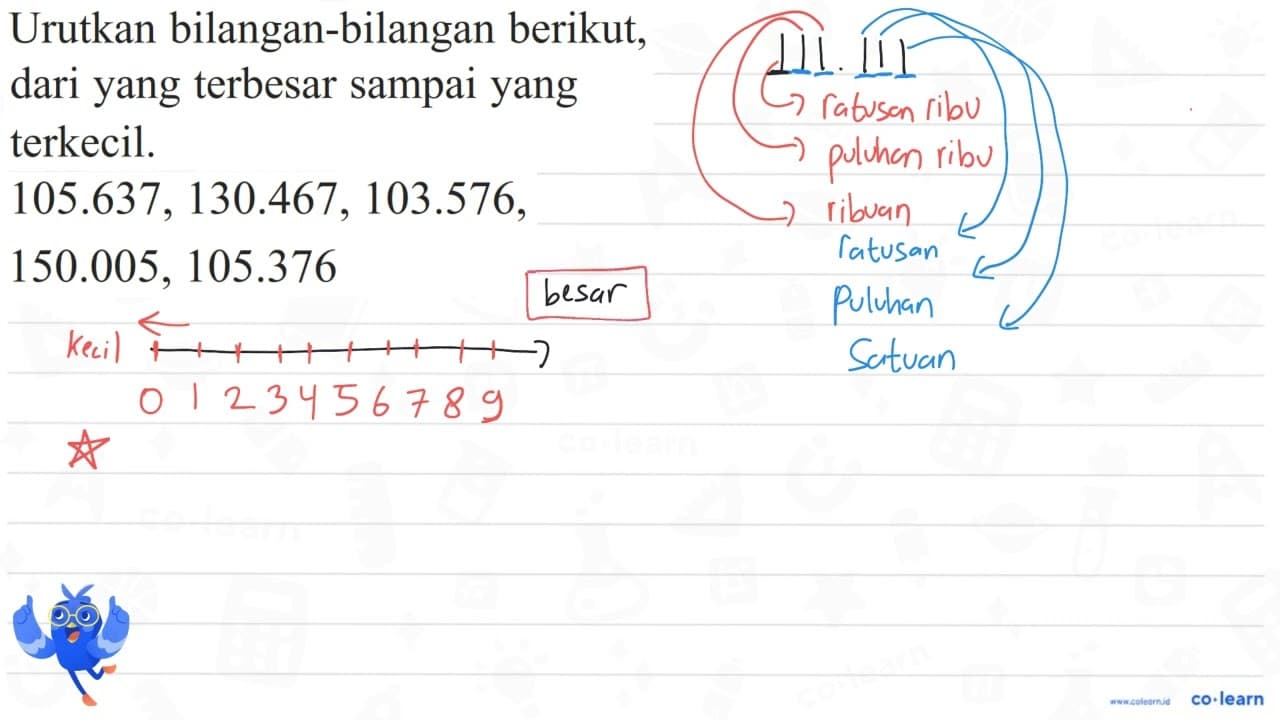 Urutkan bilangan-bilangan berikut,
dari yang terbesar sampai yang
terkecil.
105.637, 130.467, 103.576,
150.005, 105.376
111.111
ratusan ribu
puluhan ribu
ribuan
ratusan
Puluhan
Satuan
besar
kecil
0 1 2 3 4 5 6 7 8 9
co-learn
co-learn
co-learn
co-learn
www.colearn.id co·learn